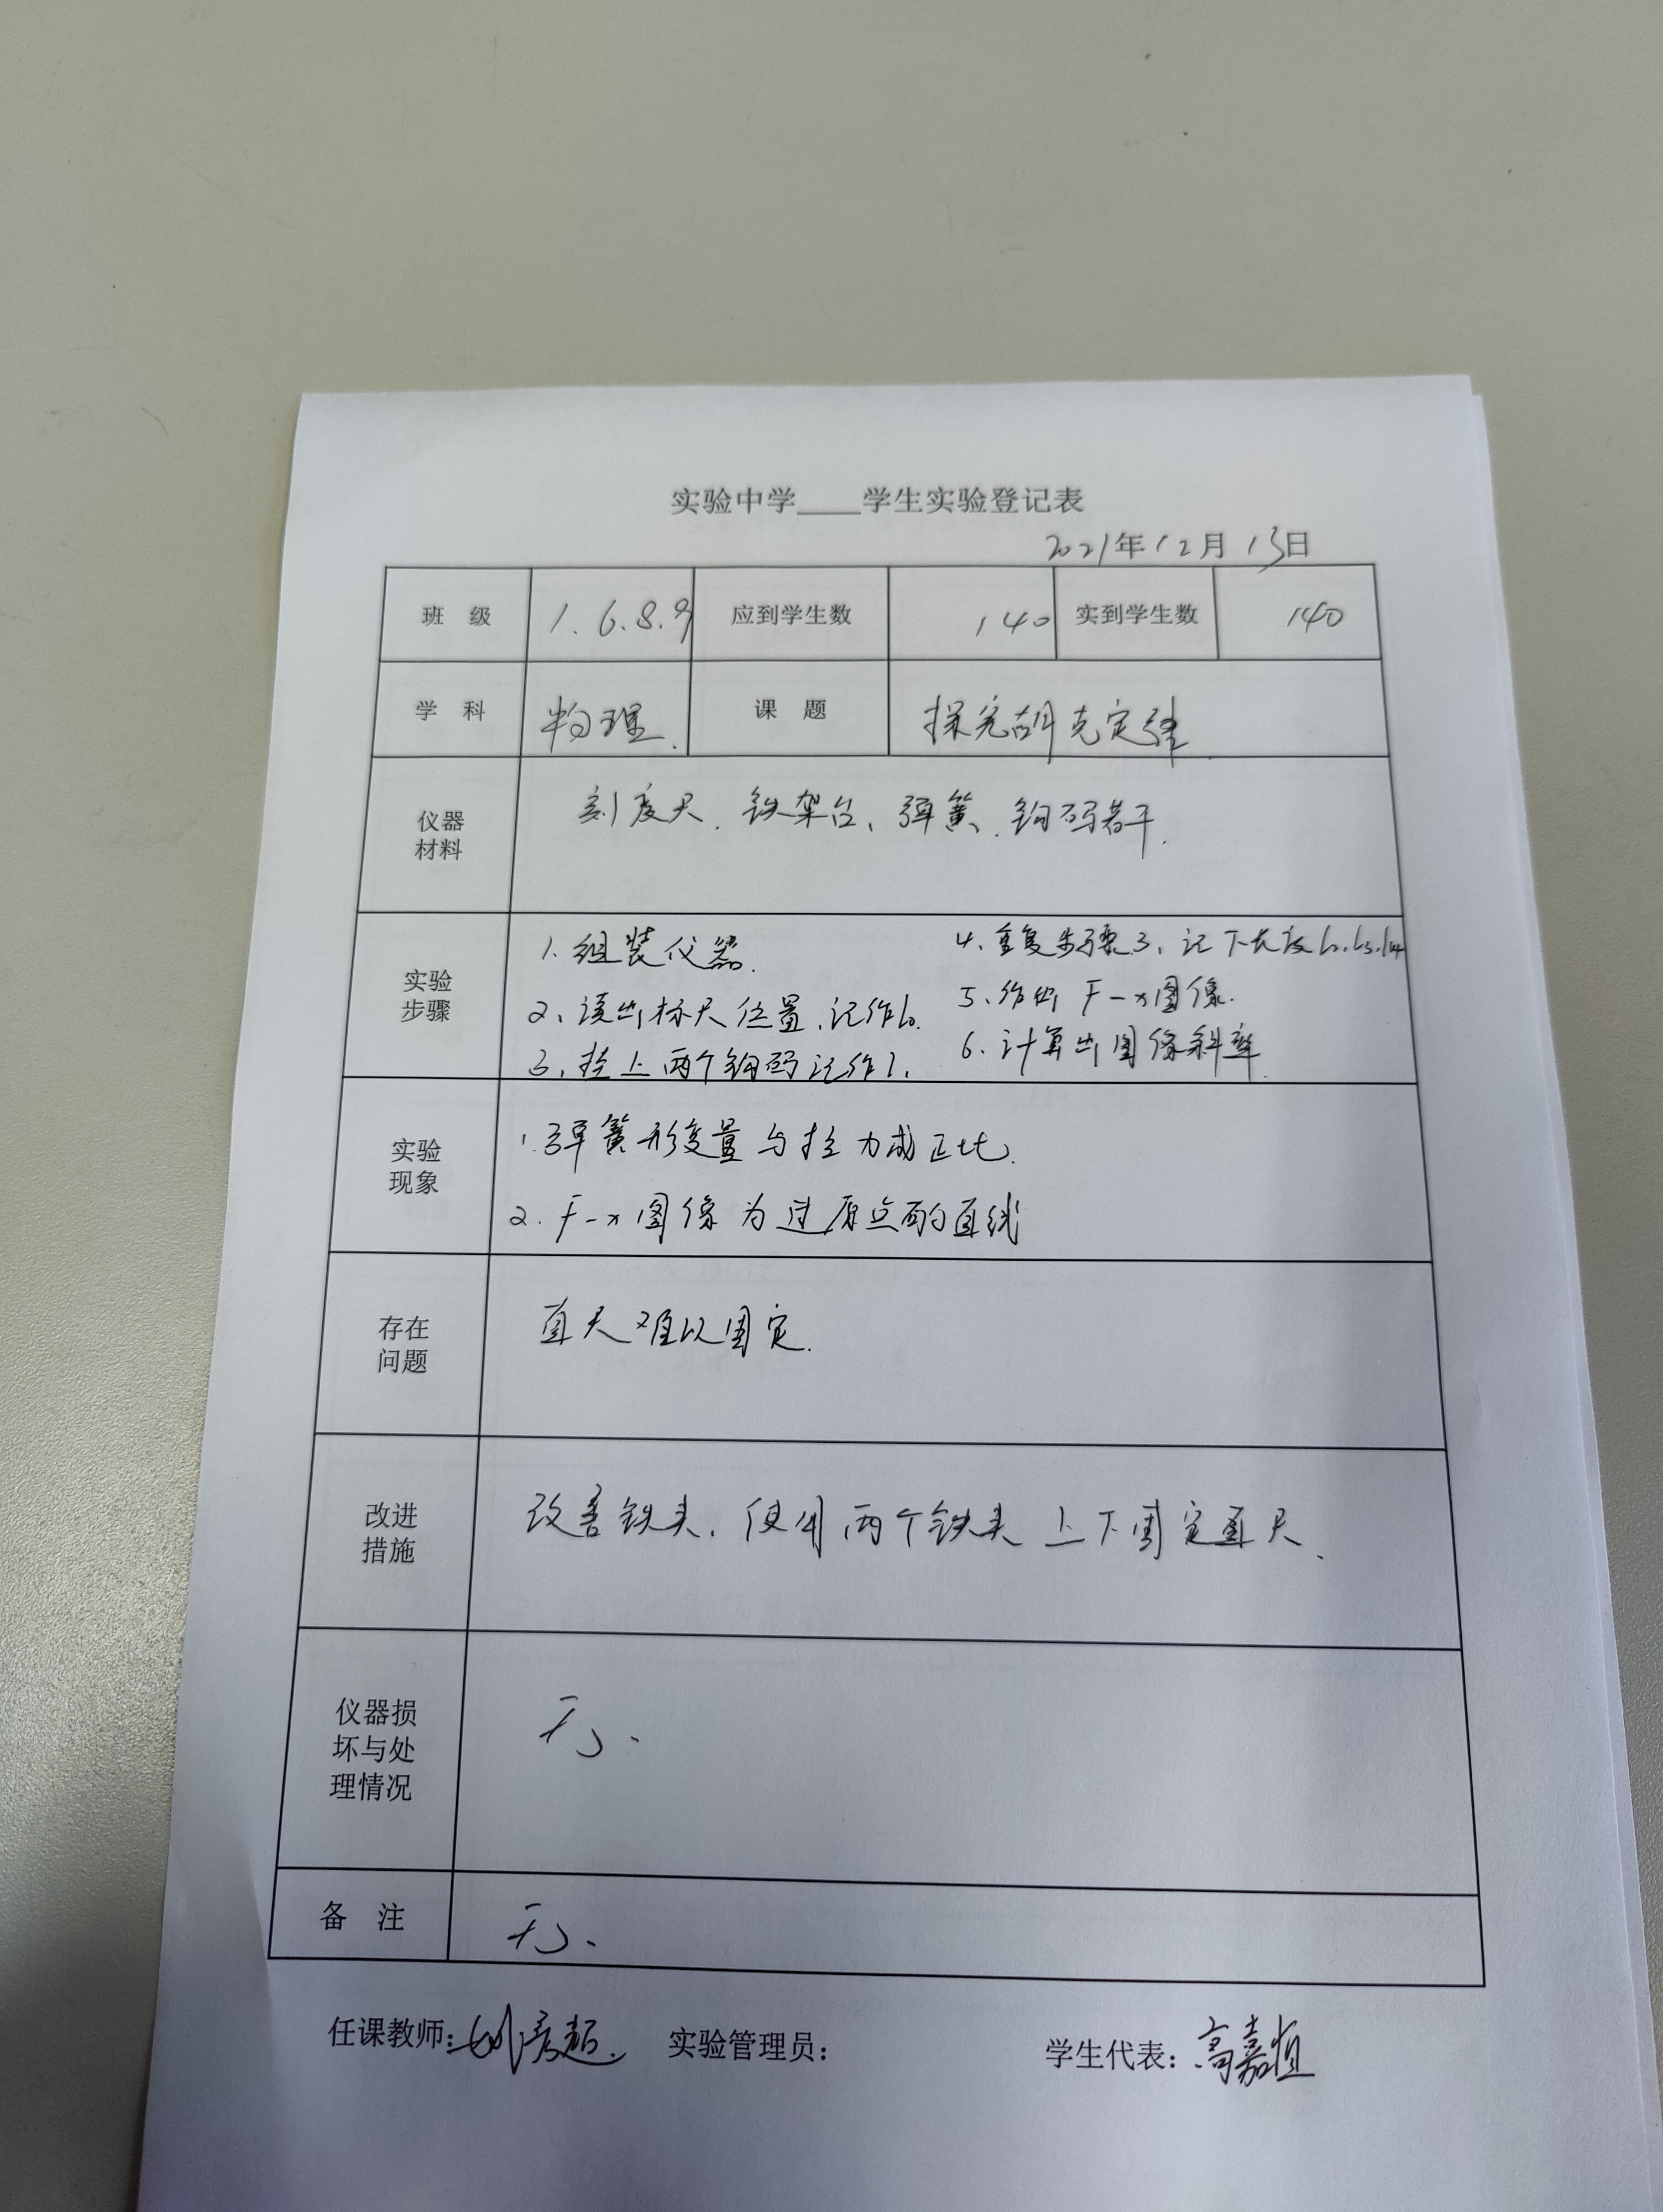 实验中学____学生实验登记表
2021年12月13日
班 级 1.6.8.9 应到学生数 140 实到学生数 140
学 科 物理. 课 题 探究胡克定律
仪器
材料
刻度尺、铁架台、弹簧、钩码若干.
实验
步骤
1. 组装仪器.
2、读出标尺位置,记作l₀.
3、挂上两个钩码记作l₁
4、重复步骤3,记下长度l₂.l₃.l₄
5、作出 F-x图像.
6、计算出图像斜率.
实验
现象
1.弹簧形变量与拉力成正比.
2. F-x图像为过原点的直线
存在
问题
直尺难以固定.
改进
措施
改善铁夹,使用两个铁夹上下固定直尺、
仪器损
坏与处
理情况
无.
备 注 无.
任课教师: 实验管理员: 学生代表:高嘉恒